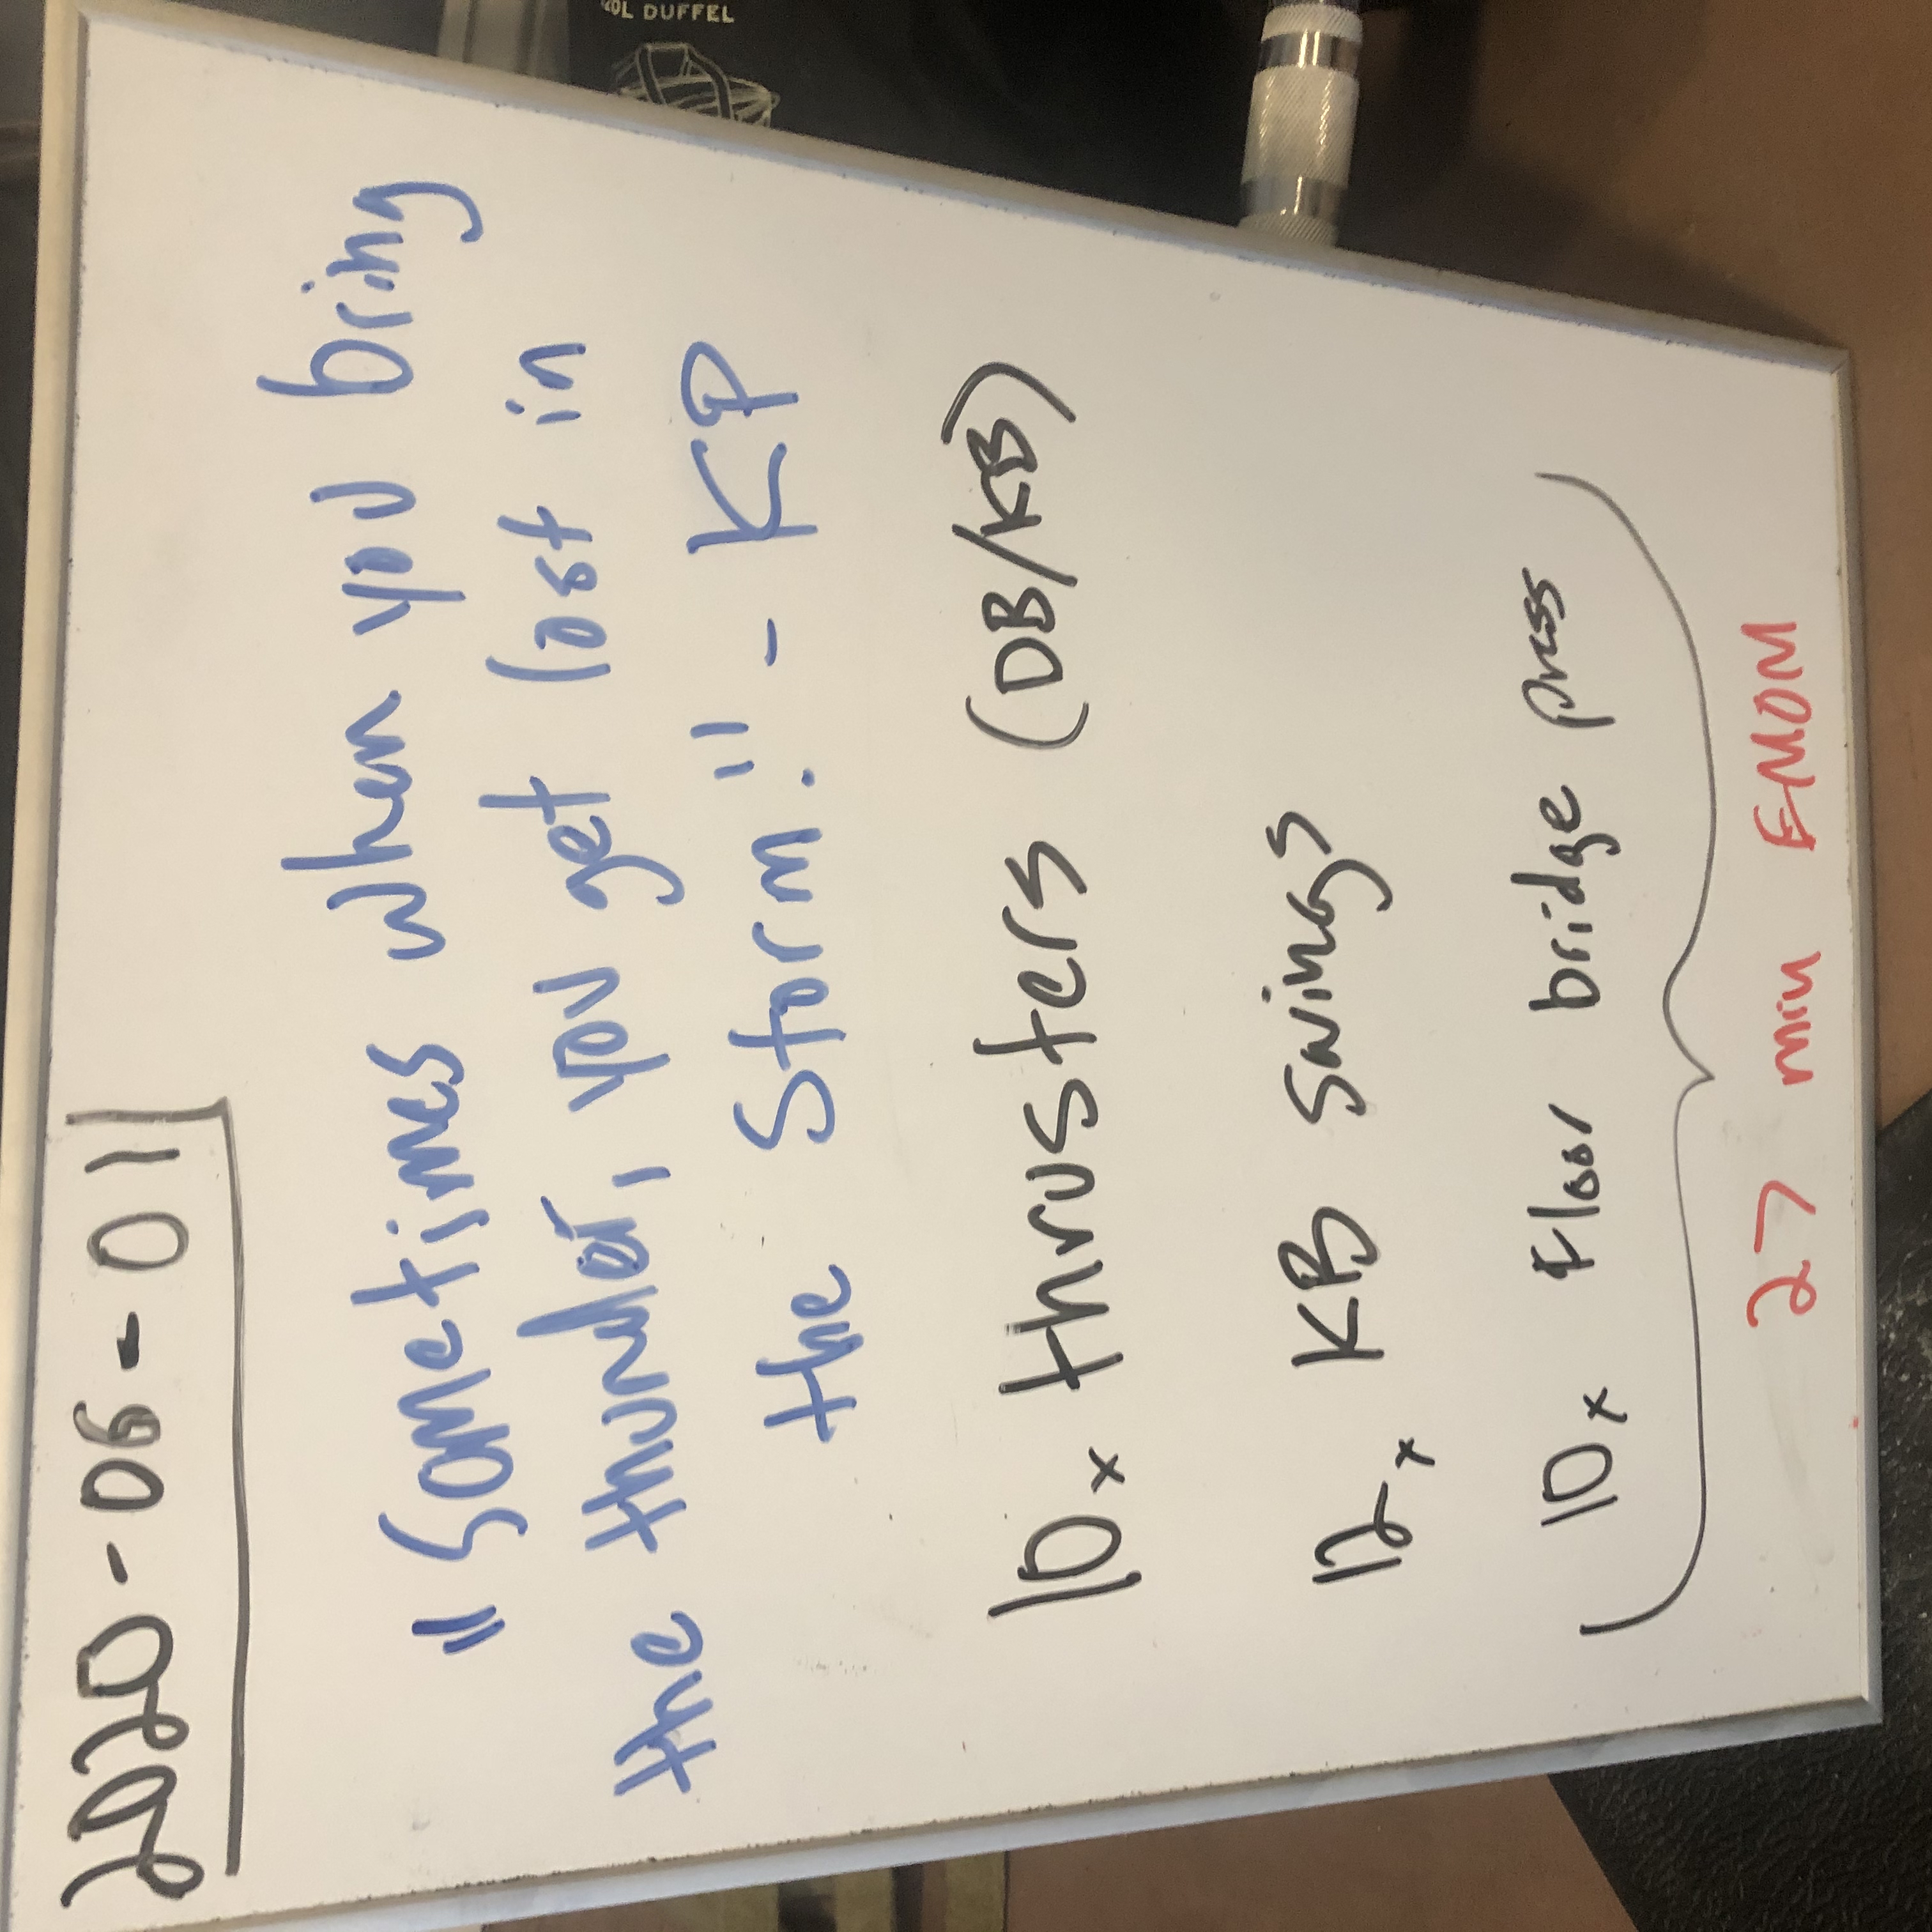 2020-06-01
"Sometimes when you bring
the thunder, you get lost in
the Storm!" - KP
10x thrusters (DB/KB)
12x KB swings
10x Floor bridge press
27 min EMOM
DUFFEL